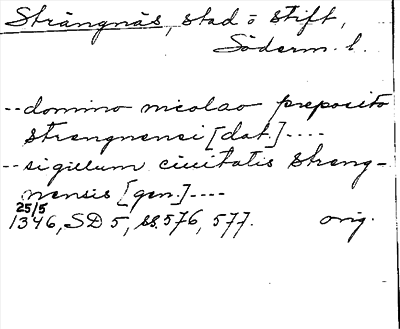 Strängnäs, stad o stift,
Söderm. l.
-- domino nicolao preposito
strengnensi [dat.] ----
-- sigillum ciuitatis streng-
nensis [gen.] ----
25/5
1346, SD 5, ss. 576, 577. orig.